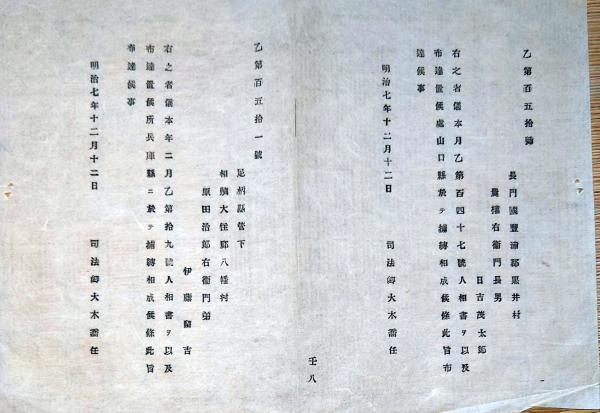 乙第百五拾號
長門國豐浦郡黒井村
貴權右衞門長男
日吉茂太郎
右之者儀本月乙第百四十七號人相書ヲ以及
布達置候處山口縣ニ於テ捕縛相成候條此旨布
達候事
明治七年十二月十二日　司法卿大木喬任
乙第百五拾一號
足柄縣管下
相模大住郡八幡村
原田治郎右衞門弟
伊藤留吉
右之者儀本年二月乙第拾九號人相書ヲ以及
布達置候所兵庫縣ニ於テ捕縛相成候條此旨
布達候事
明治七年十二月十二日　司法卿大木喬任
壬八
一